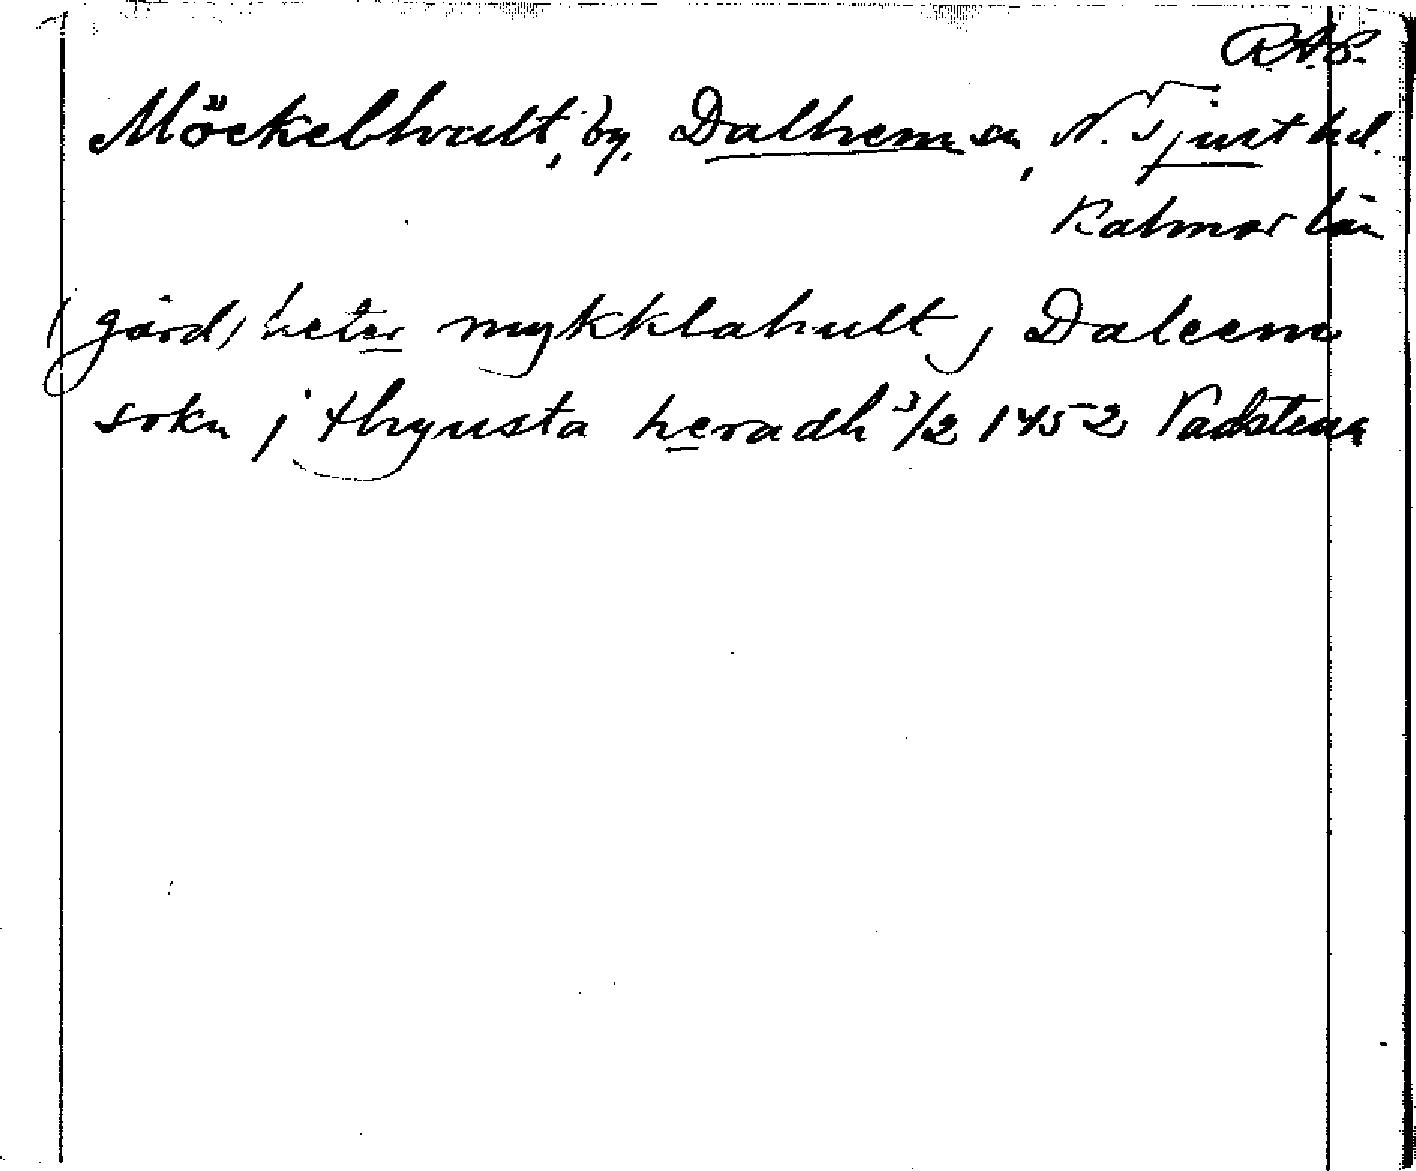 R.A.P.
Möckelhult, by, Dalhem sn, N. Tjust hd.
Kalmar län
(gård) heter mykklahult j Daleem
sokn j thyusta heradh 3/2 1452 Vadstena